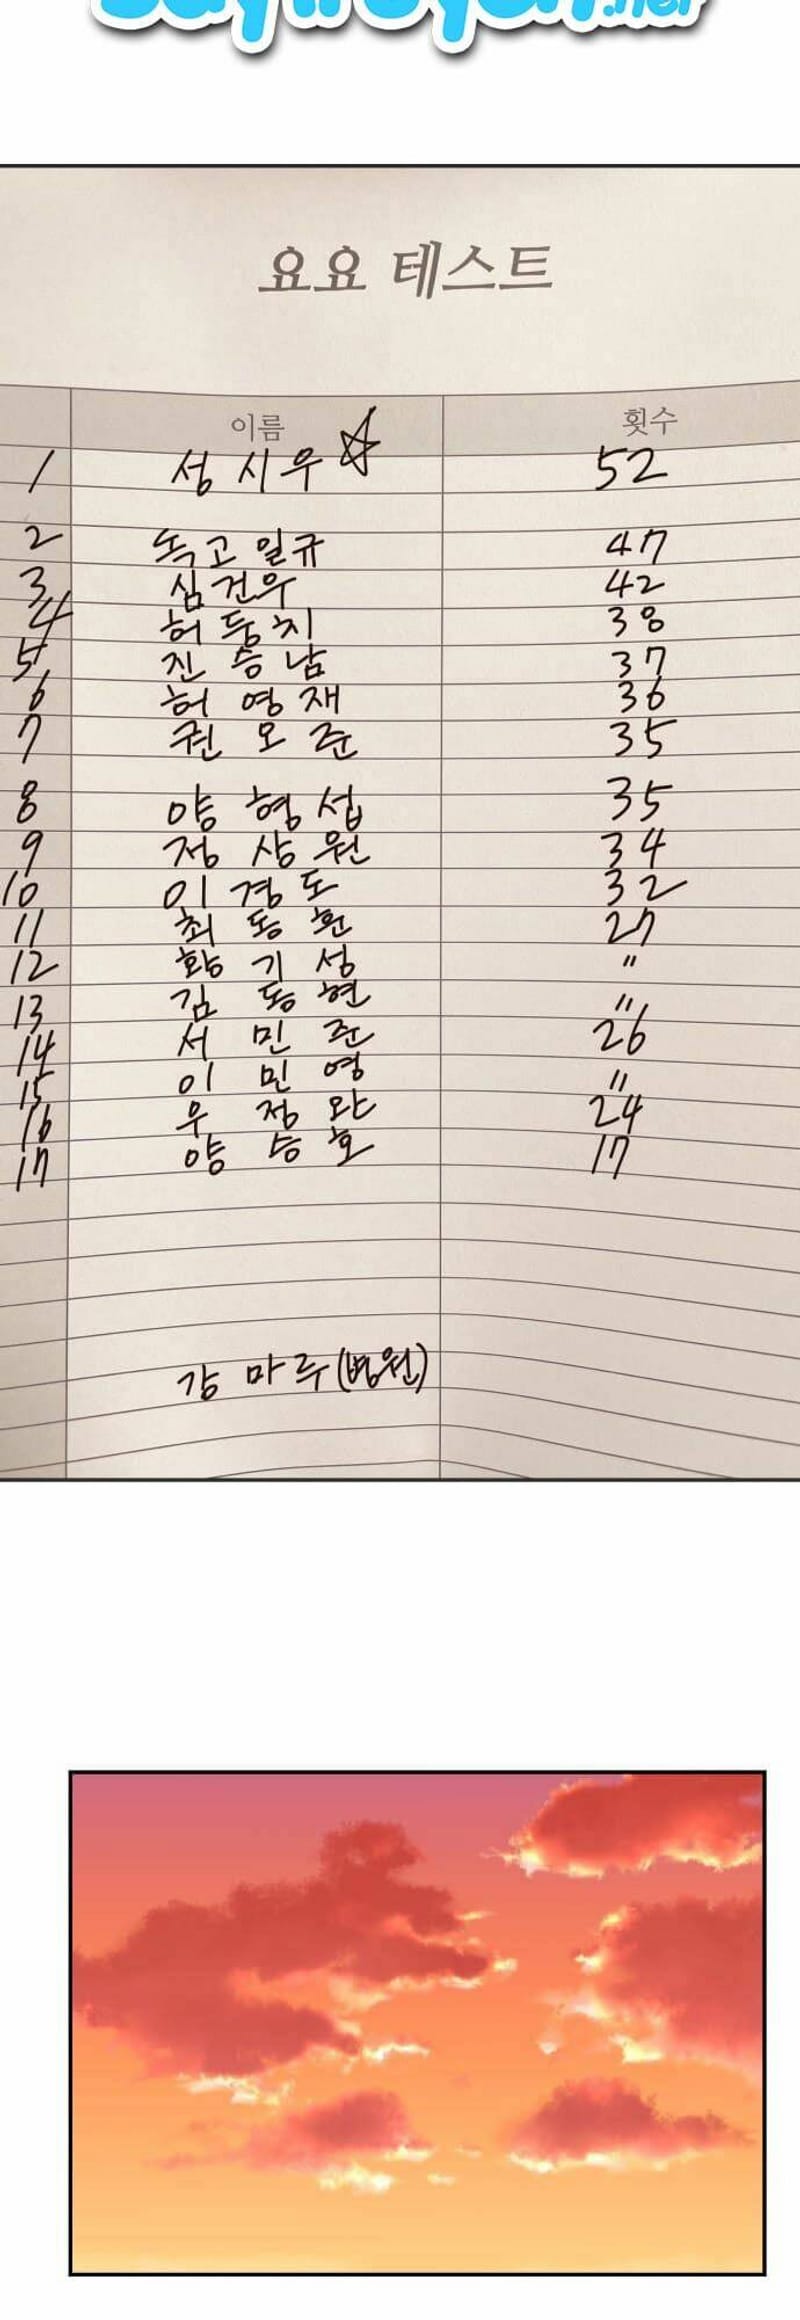 요요 테스트
이름 횟수
1 성시우☆ 52
2 독고일규 47
3 심건우 42
4 허둥치 38
5 진승남 37
6 허영재 36
7 권오준 35
8 양형섭 35
9 정상원 34
10 이경도 32
11 최동환 27
12 황기성 〃
13 김동현 〃
14 서민준 26
15 이민영 〃
16 우정완 24
17 양승호 17
강마루(병원)